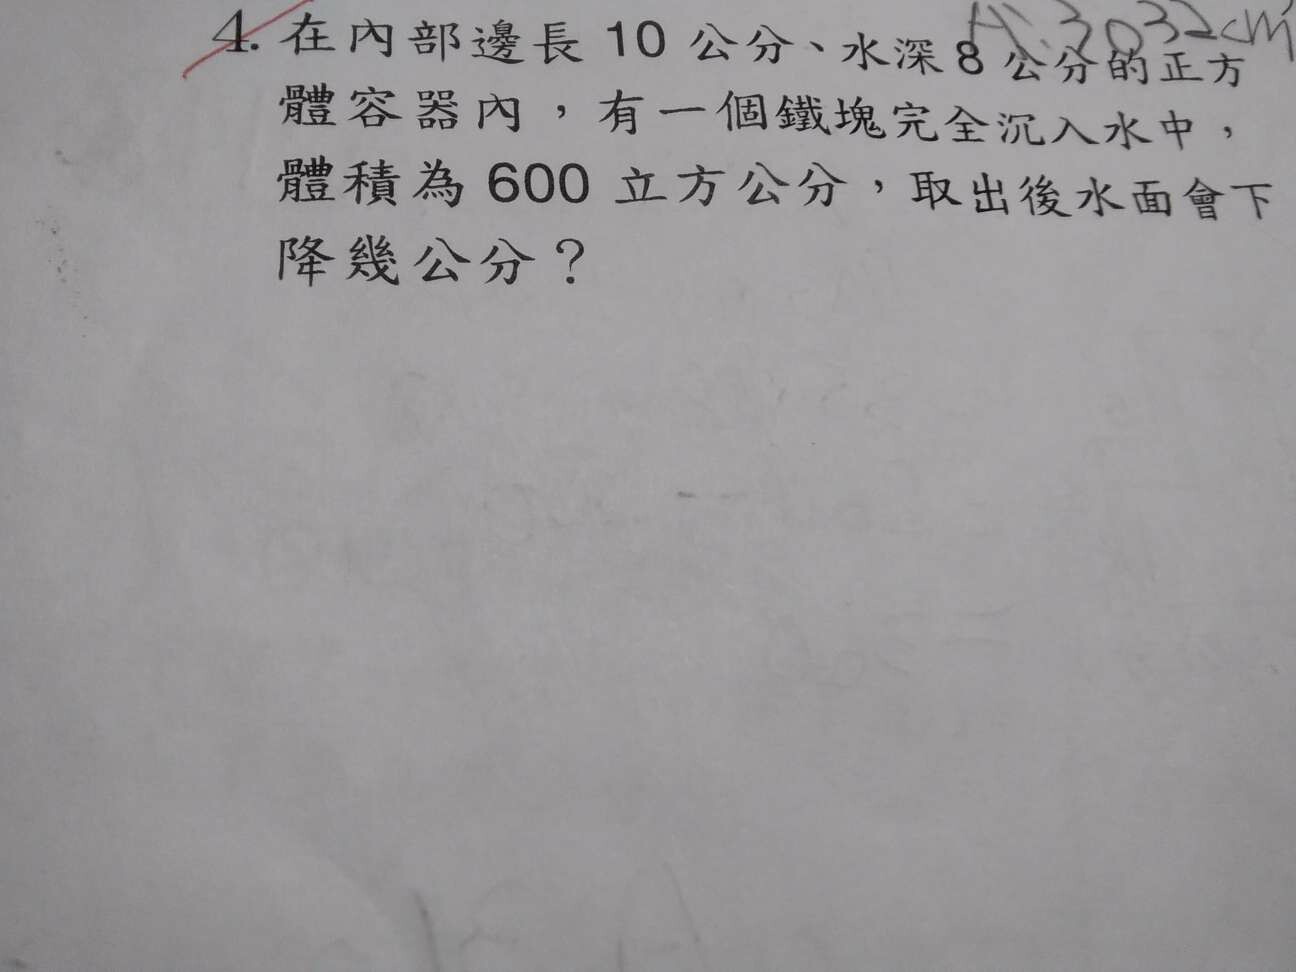 A:3032cm
4. 在內部邊長 10 公分、水深 8 公分的正方
體容器內，有一個鐵塊完全沉入水中，
體積為 600 立方公分，取出後水面會下
降幾公分？